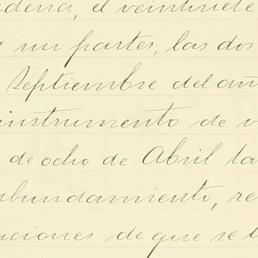 adena, el veintisiete
un partes, las dos
Septiembre del añ
instrumento de v
de ocho de Abril ta
sbundamiento, re
ciones de que se l